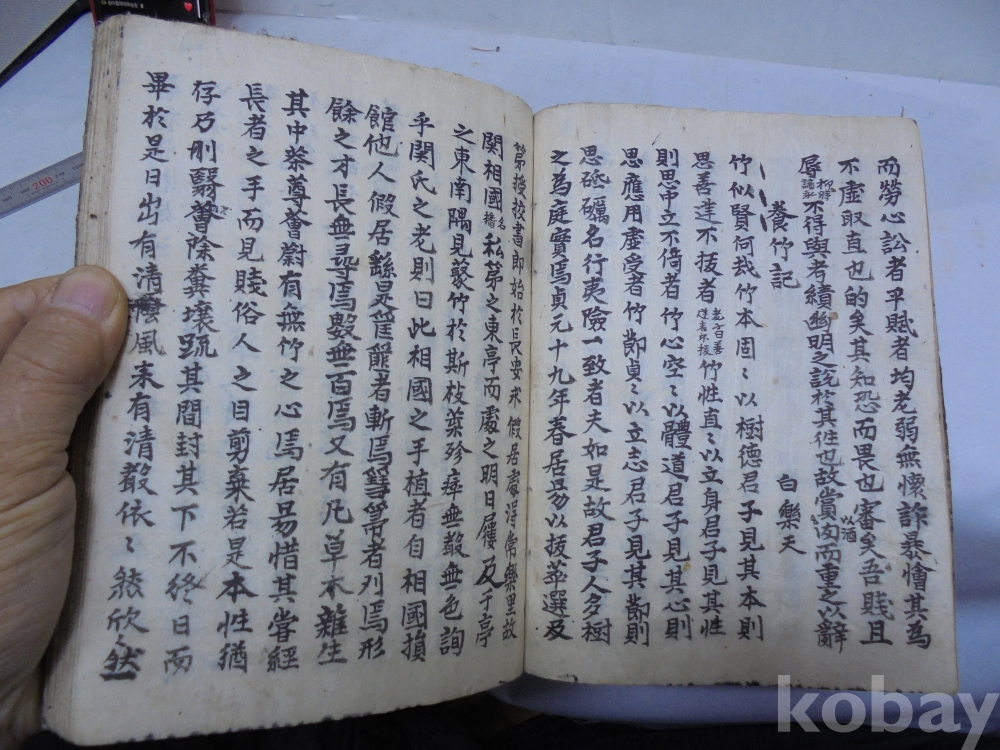 而勞心訟者平賦者均老弱無懷詐暴憎其爲
不虛取直也的矣其知恐而畏也審矣吾賤且
辱不得與考績幽明之說於其徃也故賞以酒肉而重之以辭
養竹記
白樂天
竹似賢何哉竹本固〻以樹德君子見其本則
思善建不拔者老子曰善建者不拔竹性直〻以立身君子見其性
則思中立不倚者竹心空〻以體道君子見其心則
思應用虛受者竹節貞〻以立志君子見其節則
思砥礪名行夷險一致者夫如是故君子人多樹
之爲庭實焉貞元十九年春居易以拔萃選及
第授校書郎始於長安求假居處得常樂里故
関相國私第之東亭而處之明日屨及于亭
之東南隅見叢竹於斯枝葉殄瘁無聲無色詢
乎関氏之老則曰此相國之手植者自相國損
館他人假居繇是筐篚者斬焉篲箒者刈焉形
餘之才長無尋焉數無百焉又有凡草木雜生
其中菶尊薈蔚有無竹之心焉居易惜其嘗經
長者之手而見賤俗人之目剪棄若是本性猶
存乃刪翳薈除糞壤疏其間封其下不終日而
畢於是日出有清陰風来有清聲依〻然欣〻然
200
kobay